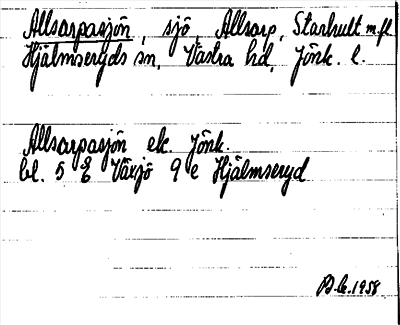 Allsarpasjön, sjö, Allsarp, Starhult m fl
Hjälmseryds sn, Västra hd, Jönk. l.
Allsarpasjön ek. Jönk.
bl. 5 E Växjö 9 e Hjälmseryd
1958